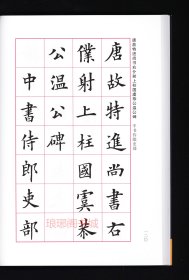 唐故特進尚書右僕射上柱國虞恭公溫公碑
唐故特進尚書右
僕射上柱國虞恭
公溫公碑
中書侍郎吏部